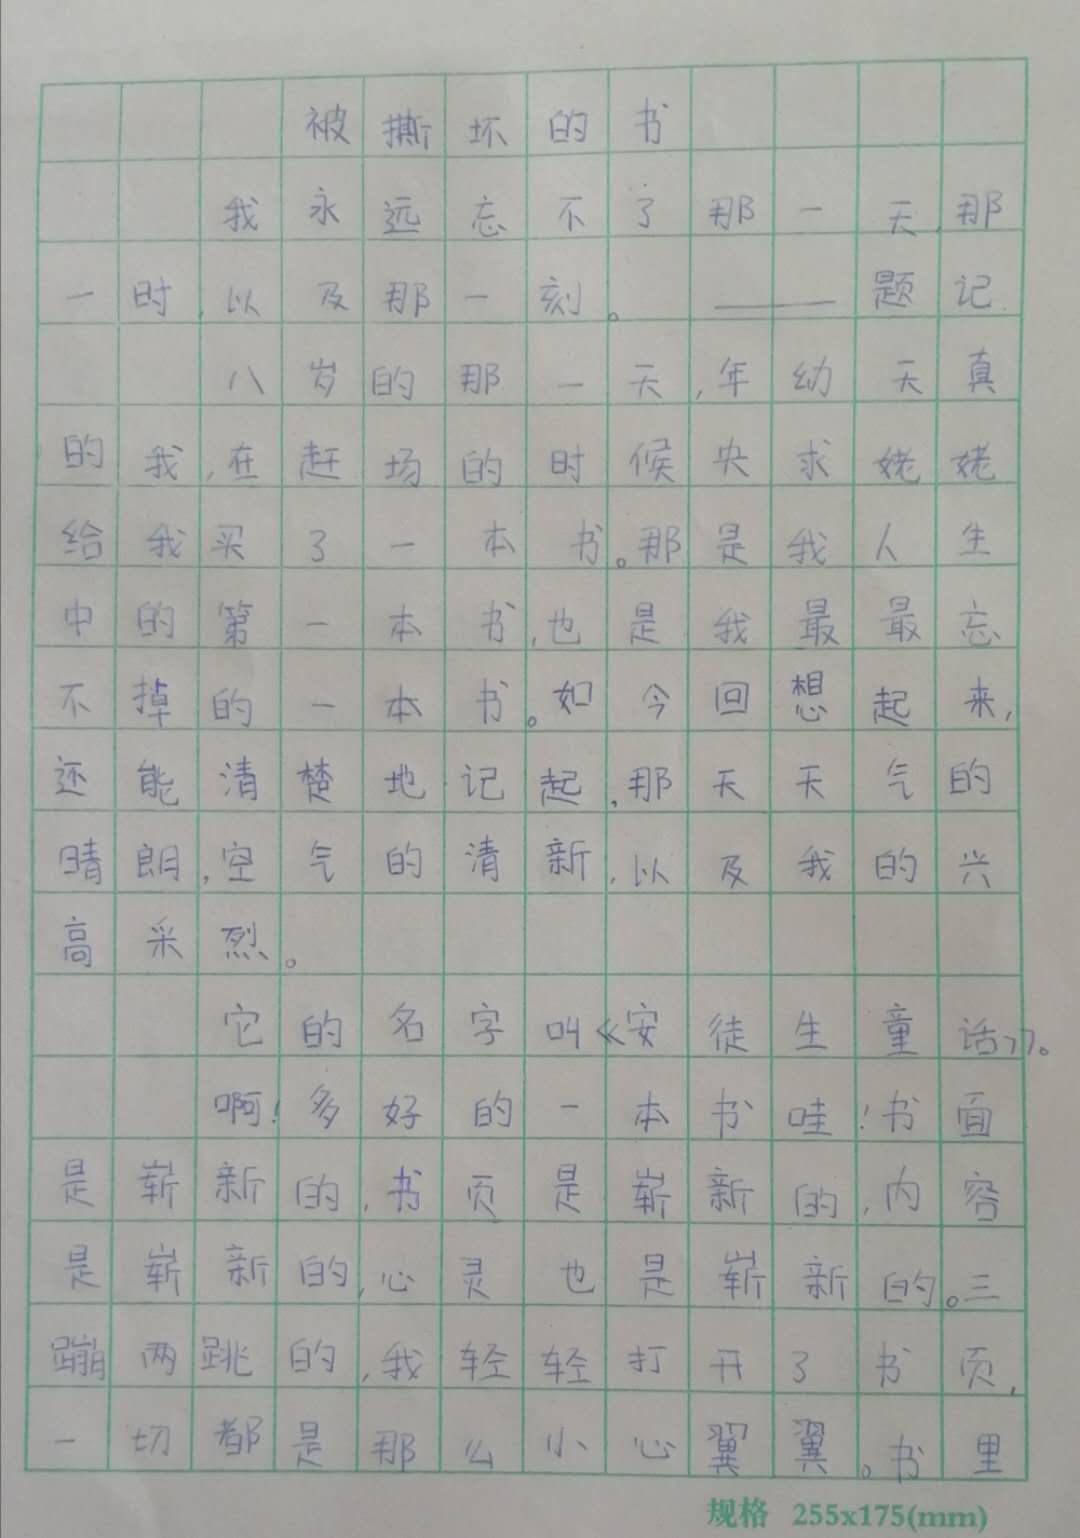 被撕坏的书
我永远忘不了那一天,那
一时,以及那一刻。——题记.
八岁的那一天,年幼天真
的我,在赶场的时候央求姥姥
给我买了一本书。那是我人生
中的第一本书,也是我最最忘
不掉的一本书。如今回想起来,
还能清楚地记起,那天天气的
晴朗,空气的清新,以及我的兴
高采烈。
它的名字叫《安徒生童话》。
啊!多好的一本书哇!书面
是崭新的,书页是崭新的,内容
是崭新的,心灵也是崭新的。三
蹦两跳的,我轻轻打开了书页,
一切都是那么小心翼翼。书里
规格 255x175(mm)